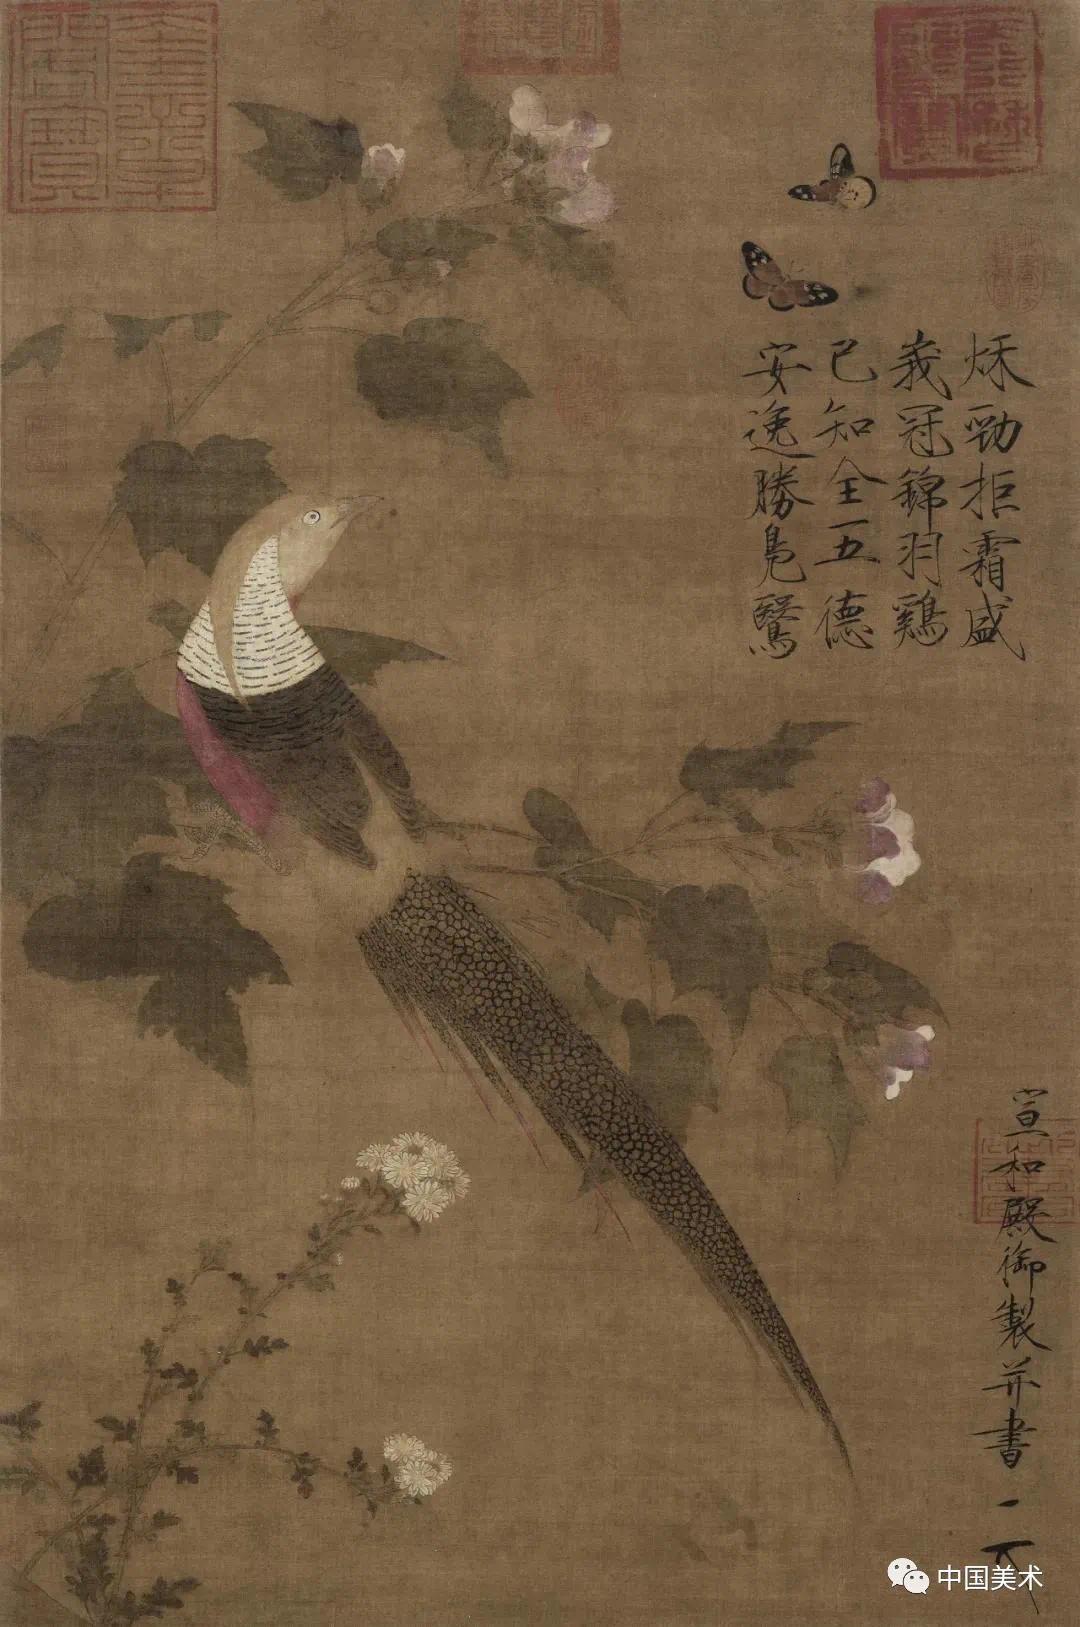 秌勁拒霜盛
峩冠錦羽鷄
已知全五德
安逸勝鳧鷖
宣和殿御製并書
天下一人
中国美术